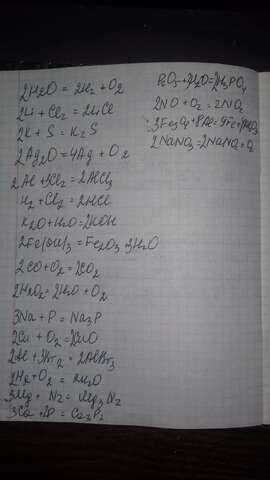 2H2O = 2H2 + O2
2Li + Cl2 = 2LiCl
2K + S = K2S
2Ag2O = 4Ag + O2
2Al + 3Cl2 = 2AlCl3
H2 + Cl2 = 2HCl
K2O + H2O = 2KOH
2Fe(OH)3 = Fe2O3 + 3H2O
2CO + O2 = 2CO2
2H2O2 = 2H2O + O2
3Na + P = Na3P
2Cu + O2 = 2CuO
2Al + 3Br2 = 2AlBr3
2H2 + O2 = 2H2O
3Mg + N2 = Mg3N2
3Ca + 2P = Ca3P2
P2O5 + 3H2O = 2H3PO4
2NO + O2 = 2NO2
3Fe3O4 + 8Al = 9Fe + 4Al2O3
2NaNO3 = 2NaNO2 + O2